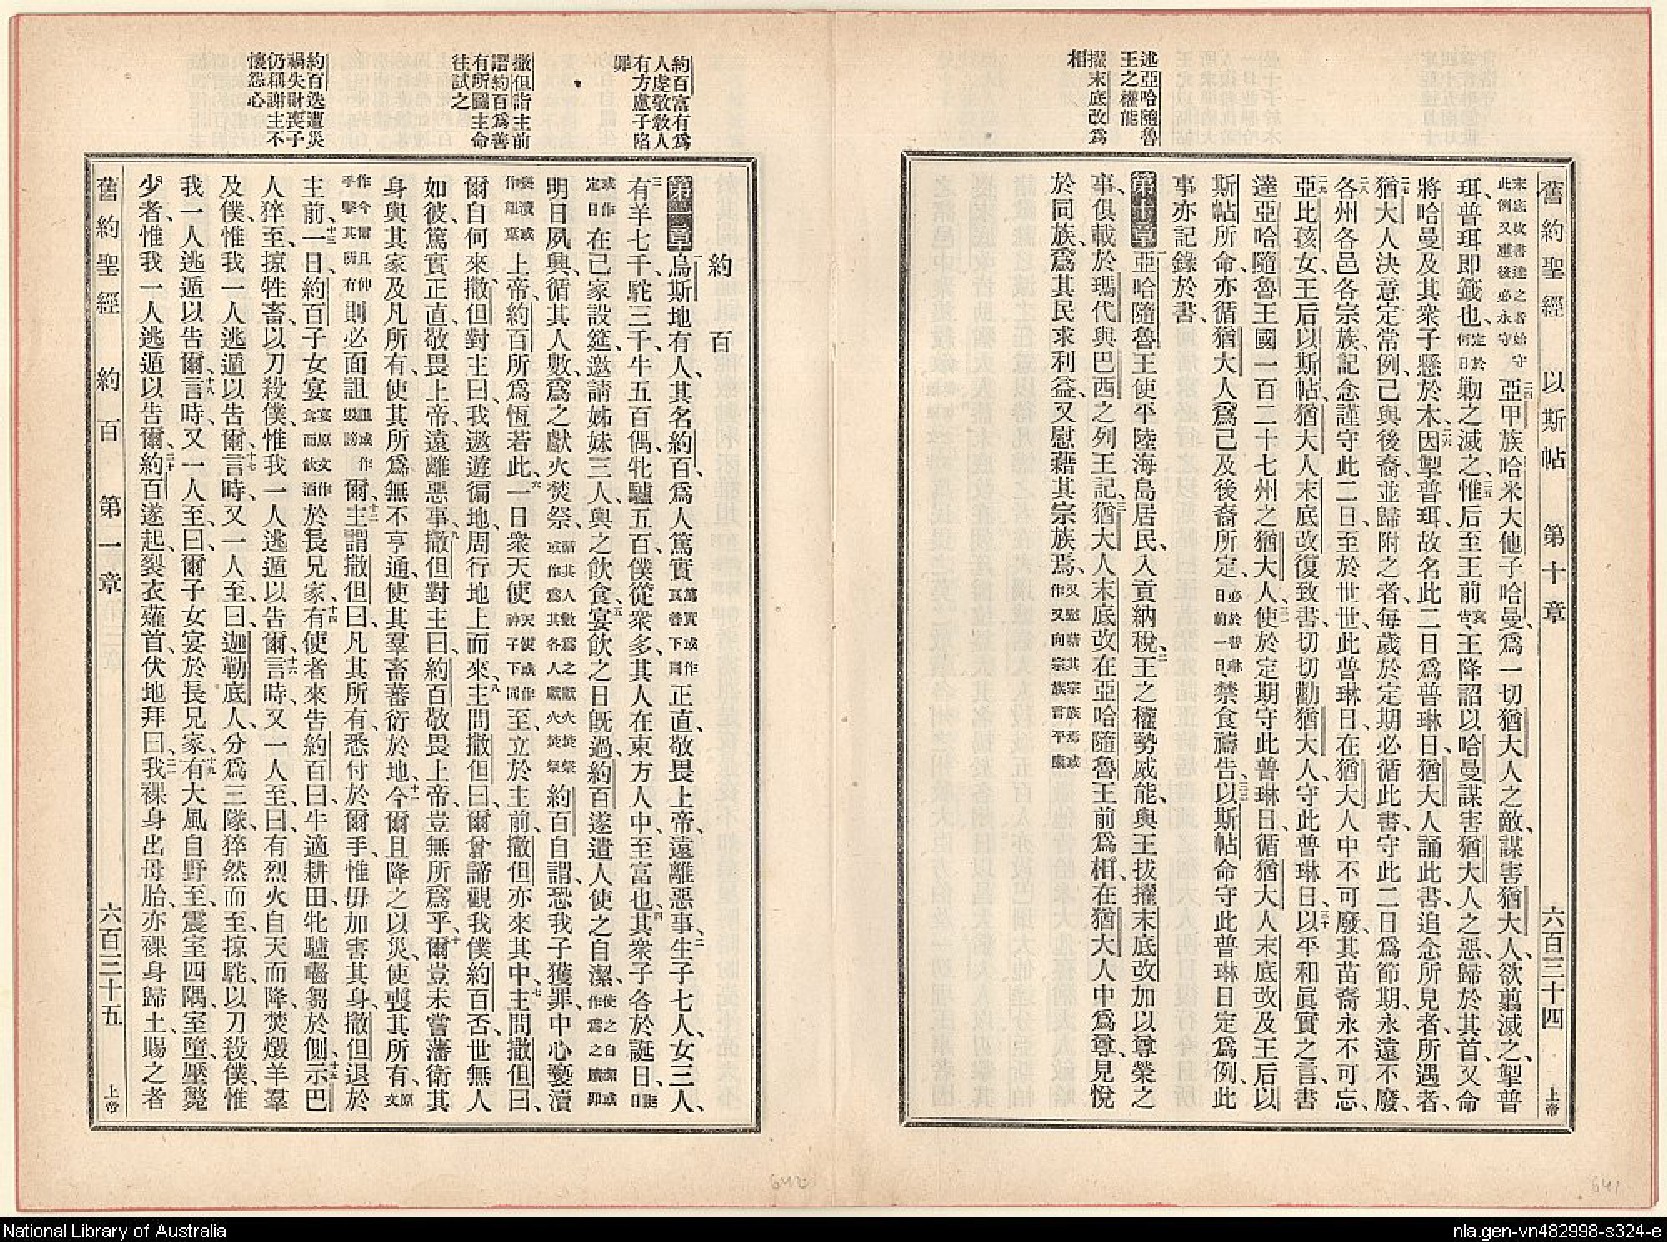 舊約聖經 以斯帖 第十章 六百三十四 上帝
述亞哈隨魯
王之權能
擢末底改爲
相
末底改書達之者始守
此例又遵後必永守
亞甲族哈米大他子哈曼爲一切猶大人之敵謀害猶大人欲翦滅之掣普
珥普珥卽籤也定於何日勦之滅之惟后至王前王降詔以哈曼謀害猶大人之惡歸於其首又命
將哈曼及其衆子懸於木因掣普珥故名此二日爲普琳日猶大人誦此書追念所見者所遇者
猶大人決意定常例己與後裔並歸附之者每歲於定期必循此書守此二日爲節期永遠不廢
各州各邑各宗族記念謹守此二日至於世世此普琳日在猶大人中不可廢其苗裔永不可忘
亞比孩女王后以斯帖猶大人末底改復致書切切勸猶大人守此普琳日以平和眞實之言書
達亞哈隨魯王國一百二十七州之猶大人使於定期守此普琳日循猶大人末底改及王后以
斯帖所命亦循猶大人爲己及後裔所定禁食禱告以斯帖命守此普琳日定爲例此
事亦記錄於書
第十章亞哈隨魯王使平陸海島居民入貢納稅王之權勢威能與王拔擢末底改加以尊榮之
事俱載於瑪代與巴西之列王記猶大人末底改在亞哈隨魯王前爲相在猶大人中爲尊見悅
於同族爲其民求利益又慰藉其宗族焉又慰藉其宗族焉或作又向宗族言平康
約百富有爲
人虔敬敎人
有方慮子陷
罪
撒但詣主前
謂約百爲善
有所圖主命
往試之
約百迭遭災
禍失財喪子
仍稱謝主不
懷怨心
約百
第一章烏斯地有人其名約百爲人篤實篤實或作瓦善下同正直敬畏上帝遠離惡事生子七人女三人
有羊七千駝三千牛五百偶牝驢五百僕從衆多其人在東方人中至富也其衆子各於誕日
或作定日在己家設筵邀請姊妹三人與之飲食宴飲之日旣過約百遂遣人使之自潔
明日夙興循其人數爲之獻火焚祭約百自謂恐我子獲罪中心褻瀆
上帝約百所爲恆若此一日衆天使天使或作神子下同至立於主前撒但亦來其中主問撒但曰
爾自何來撒但對主曰我遨遊徧地周行地上而來主問撒但曰爾曾諦觀我僕約百否世無人
如彼篤實正直敬畏上帝遠離惡事撒但對主曰約百敬畏上帝豈無所爲乎爾豈未嘗藩衛其
身與其家及凡所有使其所爲無不亨通使其羣畜蕃衍於地今爾且降之以災使喪其所有原文
作今爾且伸手擊其所有則必面詛爾主謂撒但曰凡其所有悉付於爾手惟毋加害其身撒但退於
主前一日約百子女宴宴原文作食而飲酒於長兄家有使者來告約百曰牛適耕田牝驢囓芻於側示巴
人猝至掠牲畜以刀殺僕惟我一人逃遁以告爾言時又一人至曰有烈火自天而降焚燬羊羣
及僕惟我一人逃遁以告爾言時又一人至曰迦勒底人分爲三隊猝然而至掠駝以刀殺僕惟
我一人逃遁以告爾言時又一人至曰爾子女宴於長兄家有大風自野至震室四隅室墮壓斃
少者惟我一人逃遁以告爾約百遂起裂衣薙首伏地拜曰我裸身出母胎亦裸身歸土賜之者
舊約聖經 約百 第一章 六百三十五 上帝
642
641
National Library of Australia
nla.gen-vn482998-s324-e